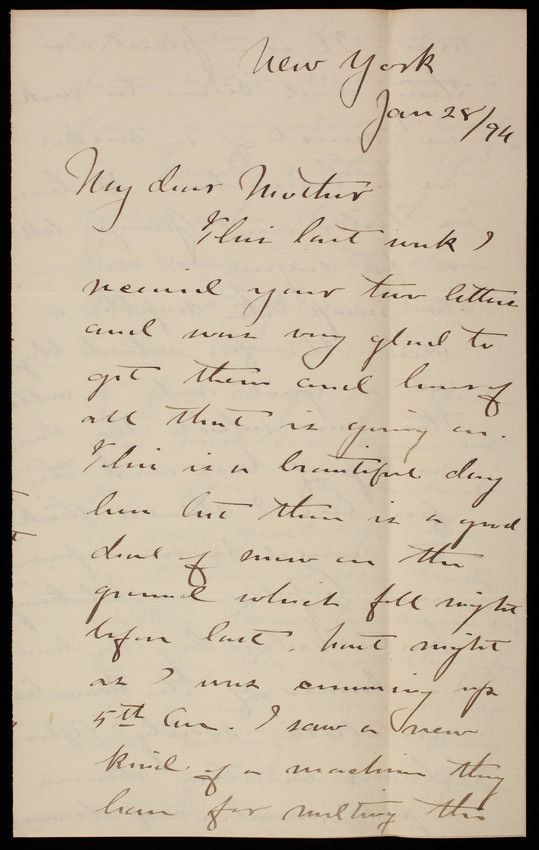 New York
Jan 28/94
My dear Mother
This last week I
received your two letters
and was very glad to
get them and hear of
all that is going on.
This is a beautiful day
here but there is a good
deal of snow on the
ground which fell night
before last. Last night
as I was comming up
5th Ave. I saw a new
kind of a machine they
have for melting the